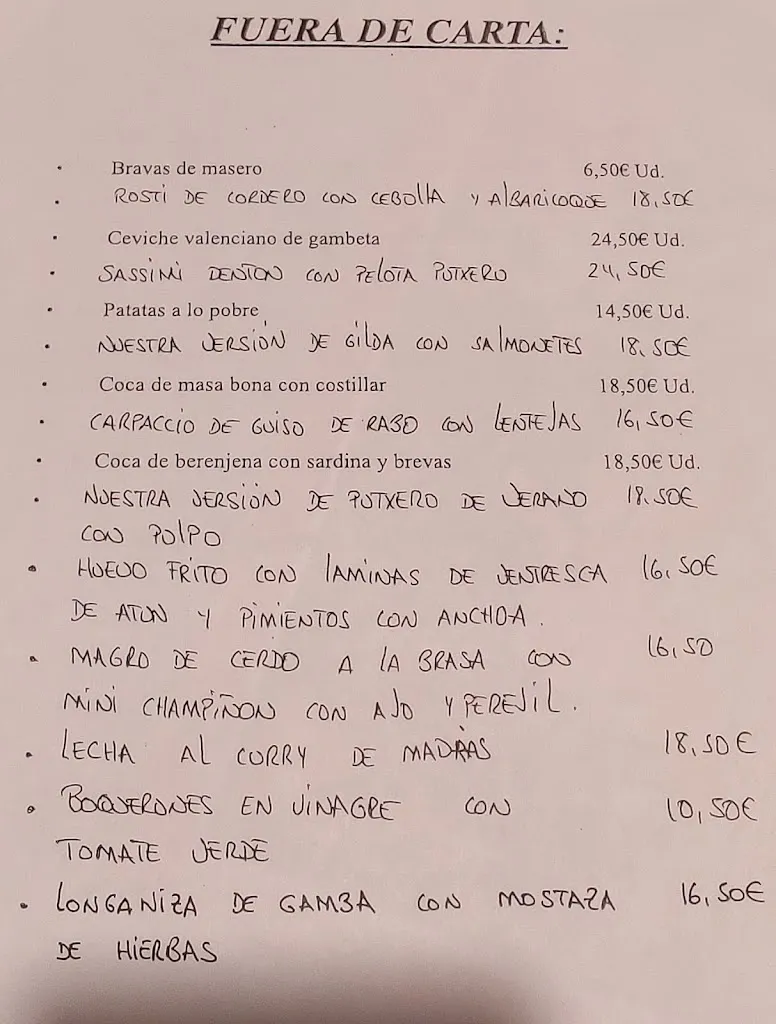 FUERA DE CARTA:
· Bravas de masero 6,50€ Ud.
· ROSTI DE CORDERO CON CEBOLLA Y ALBARICOQUE 18,50€
· Ceviche valenciano de gambeta 24,50€ Ud.
· SASSIMI DENTON CON PELOTA PUTXERO 24,50€
· Patatas a lo pobre 14,50€ Ud.
· NUESTRA VERSIÓN DE GILDA CON SALMONETES 18,50€
· Coca de masa bona con costillar 18,50€ Ud.
· CARPACCIO DE GUISO DE RABO CON LENTEJAS 16,50€
· Coca de berenjena con sardina y brevas 18,50€ Ud.
· NUESTRA VERSIÓN DE PUTXERO DE VERANO 18.50€
CON PULPO
· HUEVO FRITO CON LAMINAS DE VENTRESCA 16,50€
DE ATUN Y PIMIENTOS CON ANCHOA.
· MAGRO DE CERDO A LA BRASA CON 16,50
MINI CHAMPIÑON CON AJO Y PEREJIL.
· LECHA AL CURRY DE MADRÁS 18,50€
· BOQUERONES EN VINAGRE CON 10,50€
TOMATE VERDE
· LONGANIZA DE GAMBA CON MOSTAZA 16,50€
DE HIERBAS